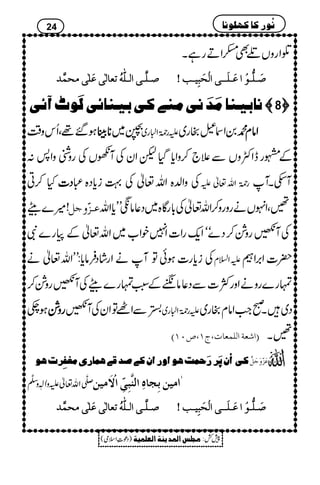 نُور کا کھلونا
25
تلواروں تلے بھی مسکراتے رہے۔
صَلُّوۡا عَلَی الۡحَبِیۡب ! صلَّی اللہُ تعالٰی علٰی محمَّد
﴿8﴾ نابینا مَدَنی منے کی بینائی لَوٹ آئی
امام محمد بن اسمٰعیل بخاری علیہ رحمۃ الباری بچپن میں نابینا ہو گئے تھے، اُس وقت
کے مشہور ڈاکٹروں سے علاج کروایا گیا لیکن ان کی آنکھوں کی روشنی واپس نہ
آسکی۔ آپ رحمۃ اللہ تعالٰی علیہ کی والدہ اللہ تعالیٰ کی بہت زیادہ عبادت کیا کرتی
تھیں، انہوں نے رو رو کر اللہ تعالیٰ کی بارگاہ میں دعا مانگی ’’یا اللہ عزوجل! میرے بیٹے
کی آنکھیں روشن کر دے‘‘۔ ایک رات انہیں خواب میں اللہ تعالیٰ کے پیارے نبی
حضرت ابراہیم علیہ السلام کی زیارت ہوئی تو آپ نے ارشاد فرمایا: ’’اللہ تعالیٰ نے
تمہارے رونے اور کثرت سے دعا مانگنے کے سبب تمہارے بیٹے کی آنکھیں روشن کر
دی ہیں۔ صبح جب امام بخاری علیہ رحمۃ الباری بستر سے اٹھے تو ان کی آنکھیں روشن ہو چکی
تھیں۔ (اشعۃ اللمعات، ج۱، ص۱۰)
اللہ عَزَّوَجَلَّ کی اُن پَر رَحمت ہو اور ان کے صدقے ہماری مغفِرت ہو
اٰمین بِجاہِ النَّبِیِّ الْاَمین صلَّی اللہ تعالٰی علیہ واٰلہٖ وسلَّم
صَلُّوۡا عَلَی الۡحَبِیۡب ! صلَّی اللہُ تعالٰی علٰی محمَّد
پیش کش: مجلس المدینۃ العلمیۃ (دعوتِ اسلامی)